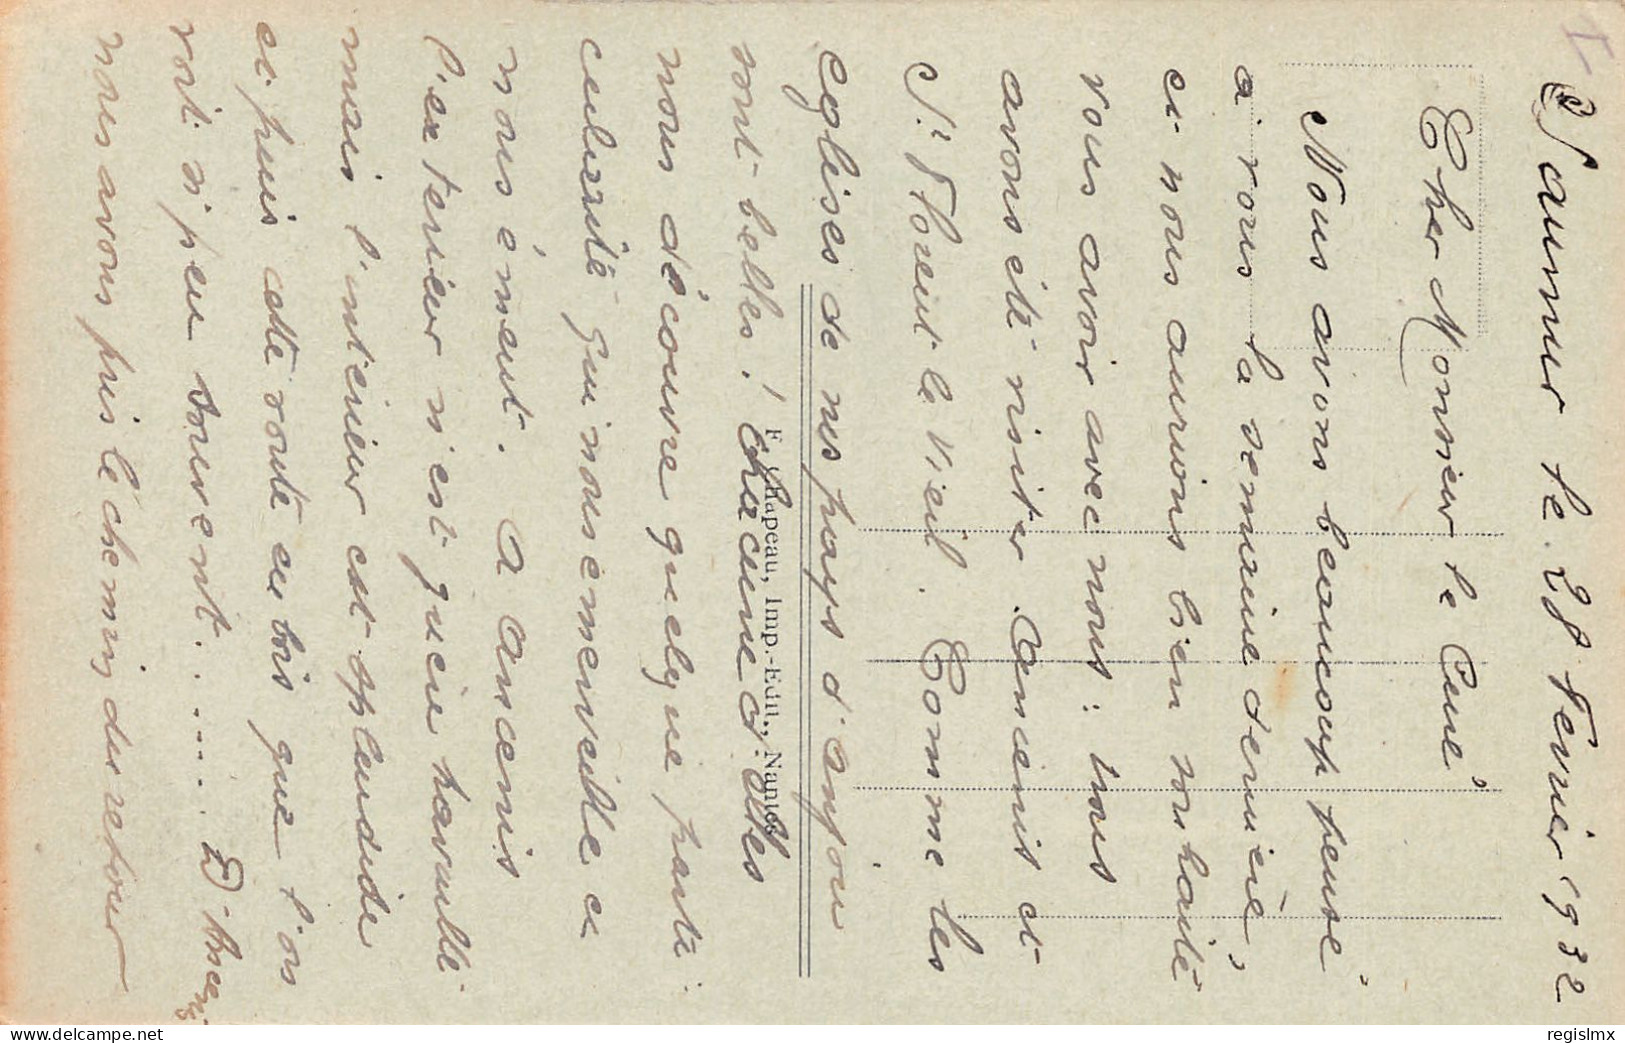 Saumur le 28 Fevrier 1932
Cher Monsieur le Curé
Nous avons beaucoup pensé
à vous la semaine dernière,
et nous aurions bien souhaité
vous avoir avec nous : nous
avons été visiter Ancenis et
St Florent le Vieil. Comme les
églises de nos pays d'anjou
sont belles ! Chacune d'elles
nous découvre quelque parti-
cularité qui nous émerveille et
nous émeut. A Ancenis
l'exterieur n'est guère travaillé
mais l'interieur est splendide
et puis cette voute en bois que l'on
voit si peu souvent....... D'Ancenis
nous avons pris le chemin du retour
F. Chapeau, Imp.-Edit., Nantes
regislmx